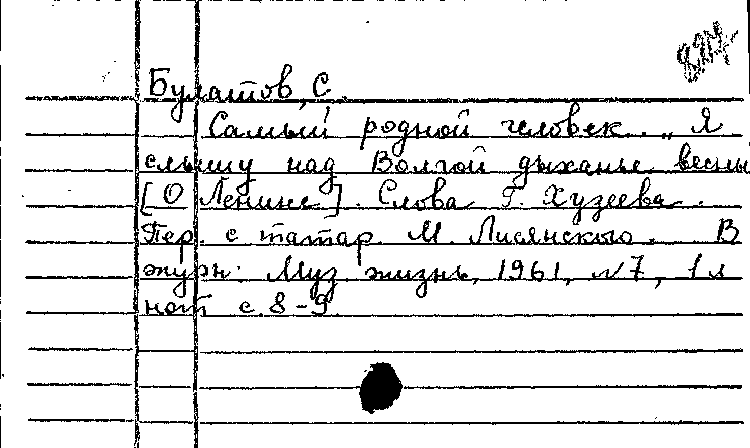 Булатов, С.
Самый родной человек. „Я
слышу над Волгой дыханье весны
[О Ленине]. Слова Г. Хузеева.
Пер. с татар. М. Лисянского. В
журн: Муз. жизнь, 1961, №7, 1л
нот с. 8-9.